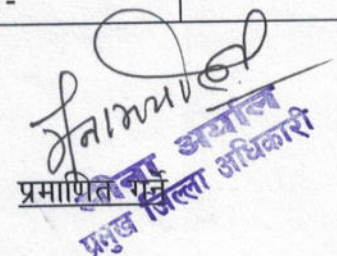 प्रमाणित गर्ने
अर्याल
प्रमुख जिल्ला अधिकारी